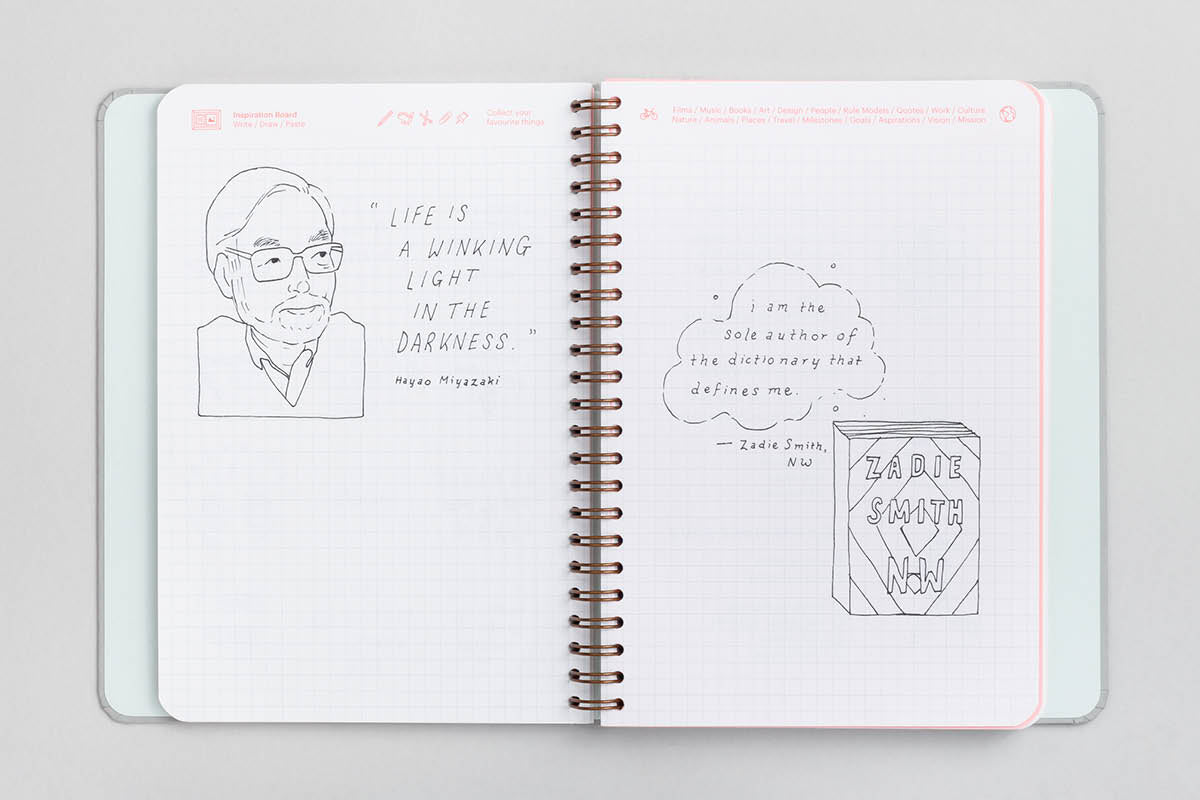 Inspiration Board
Write / Draw / Paste
Collect your
favourite things
“ LIFE IS
A WINKING
LIGHT
IN THE
DARKNESS. ”
Hayao Miyazaki
Films / Music / Books / Art / Design / People / Role Models / Quotes / Work / Culture
Nature / Animals / Places / Travel / Milestones / Goals / Aspirations / Vision / Mission
i am the
sole author of
the dictionary that
defines me.
— Zadie Smith,
NW
ZADIE
SMITH
NW